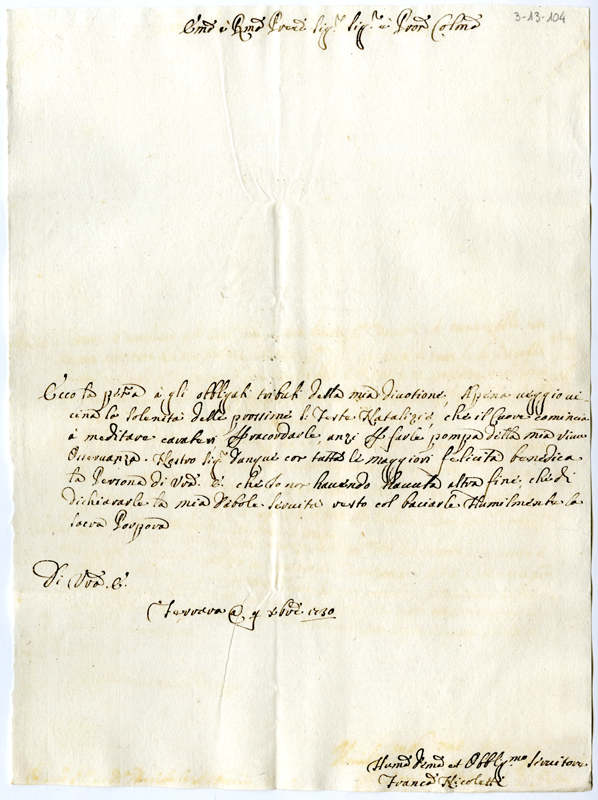 3-13-104
Emo e Rmo Prnpe Sigr. Sigr. e Pron Colmo
Ecco la a gli obbligati tributi della mia divotione, Apena veggio vi
cina la Solenità delle prossime S. Feste Natalizie che il Cuore comincia
à meditare carateri racordarle, anzi farle pompa della mia viva
Osservanza. Nostro Sigr. dunque con tutte le maggiori felicità benedica
la Persona di Vra. E. che Io non havendo havuta altra fine, che di
dichiararle la mia debole servitù resto col baciarle Humilmente la
sacra Porpora
Di Vra. E.
Ferrara 9 Xbre. 1730
Humo Devmo et Obblgmo Servitore.
Franco Nicoletti